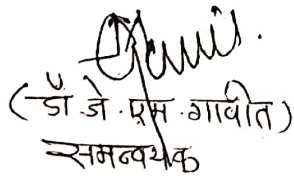 (डॉ.जे.एम.गावीत)
समन्वयक